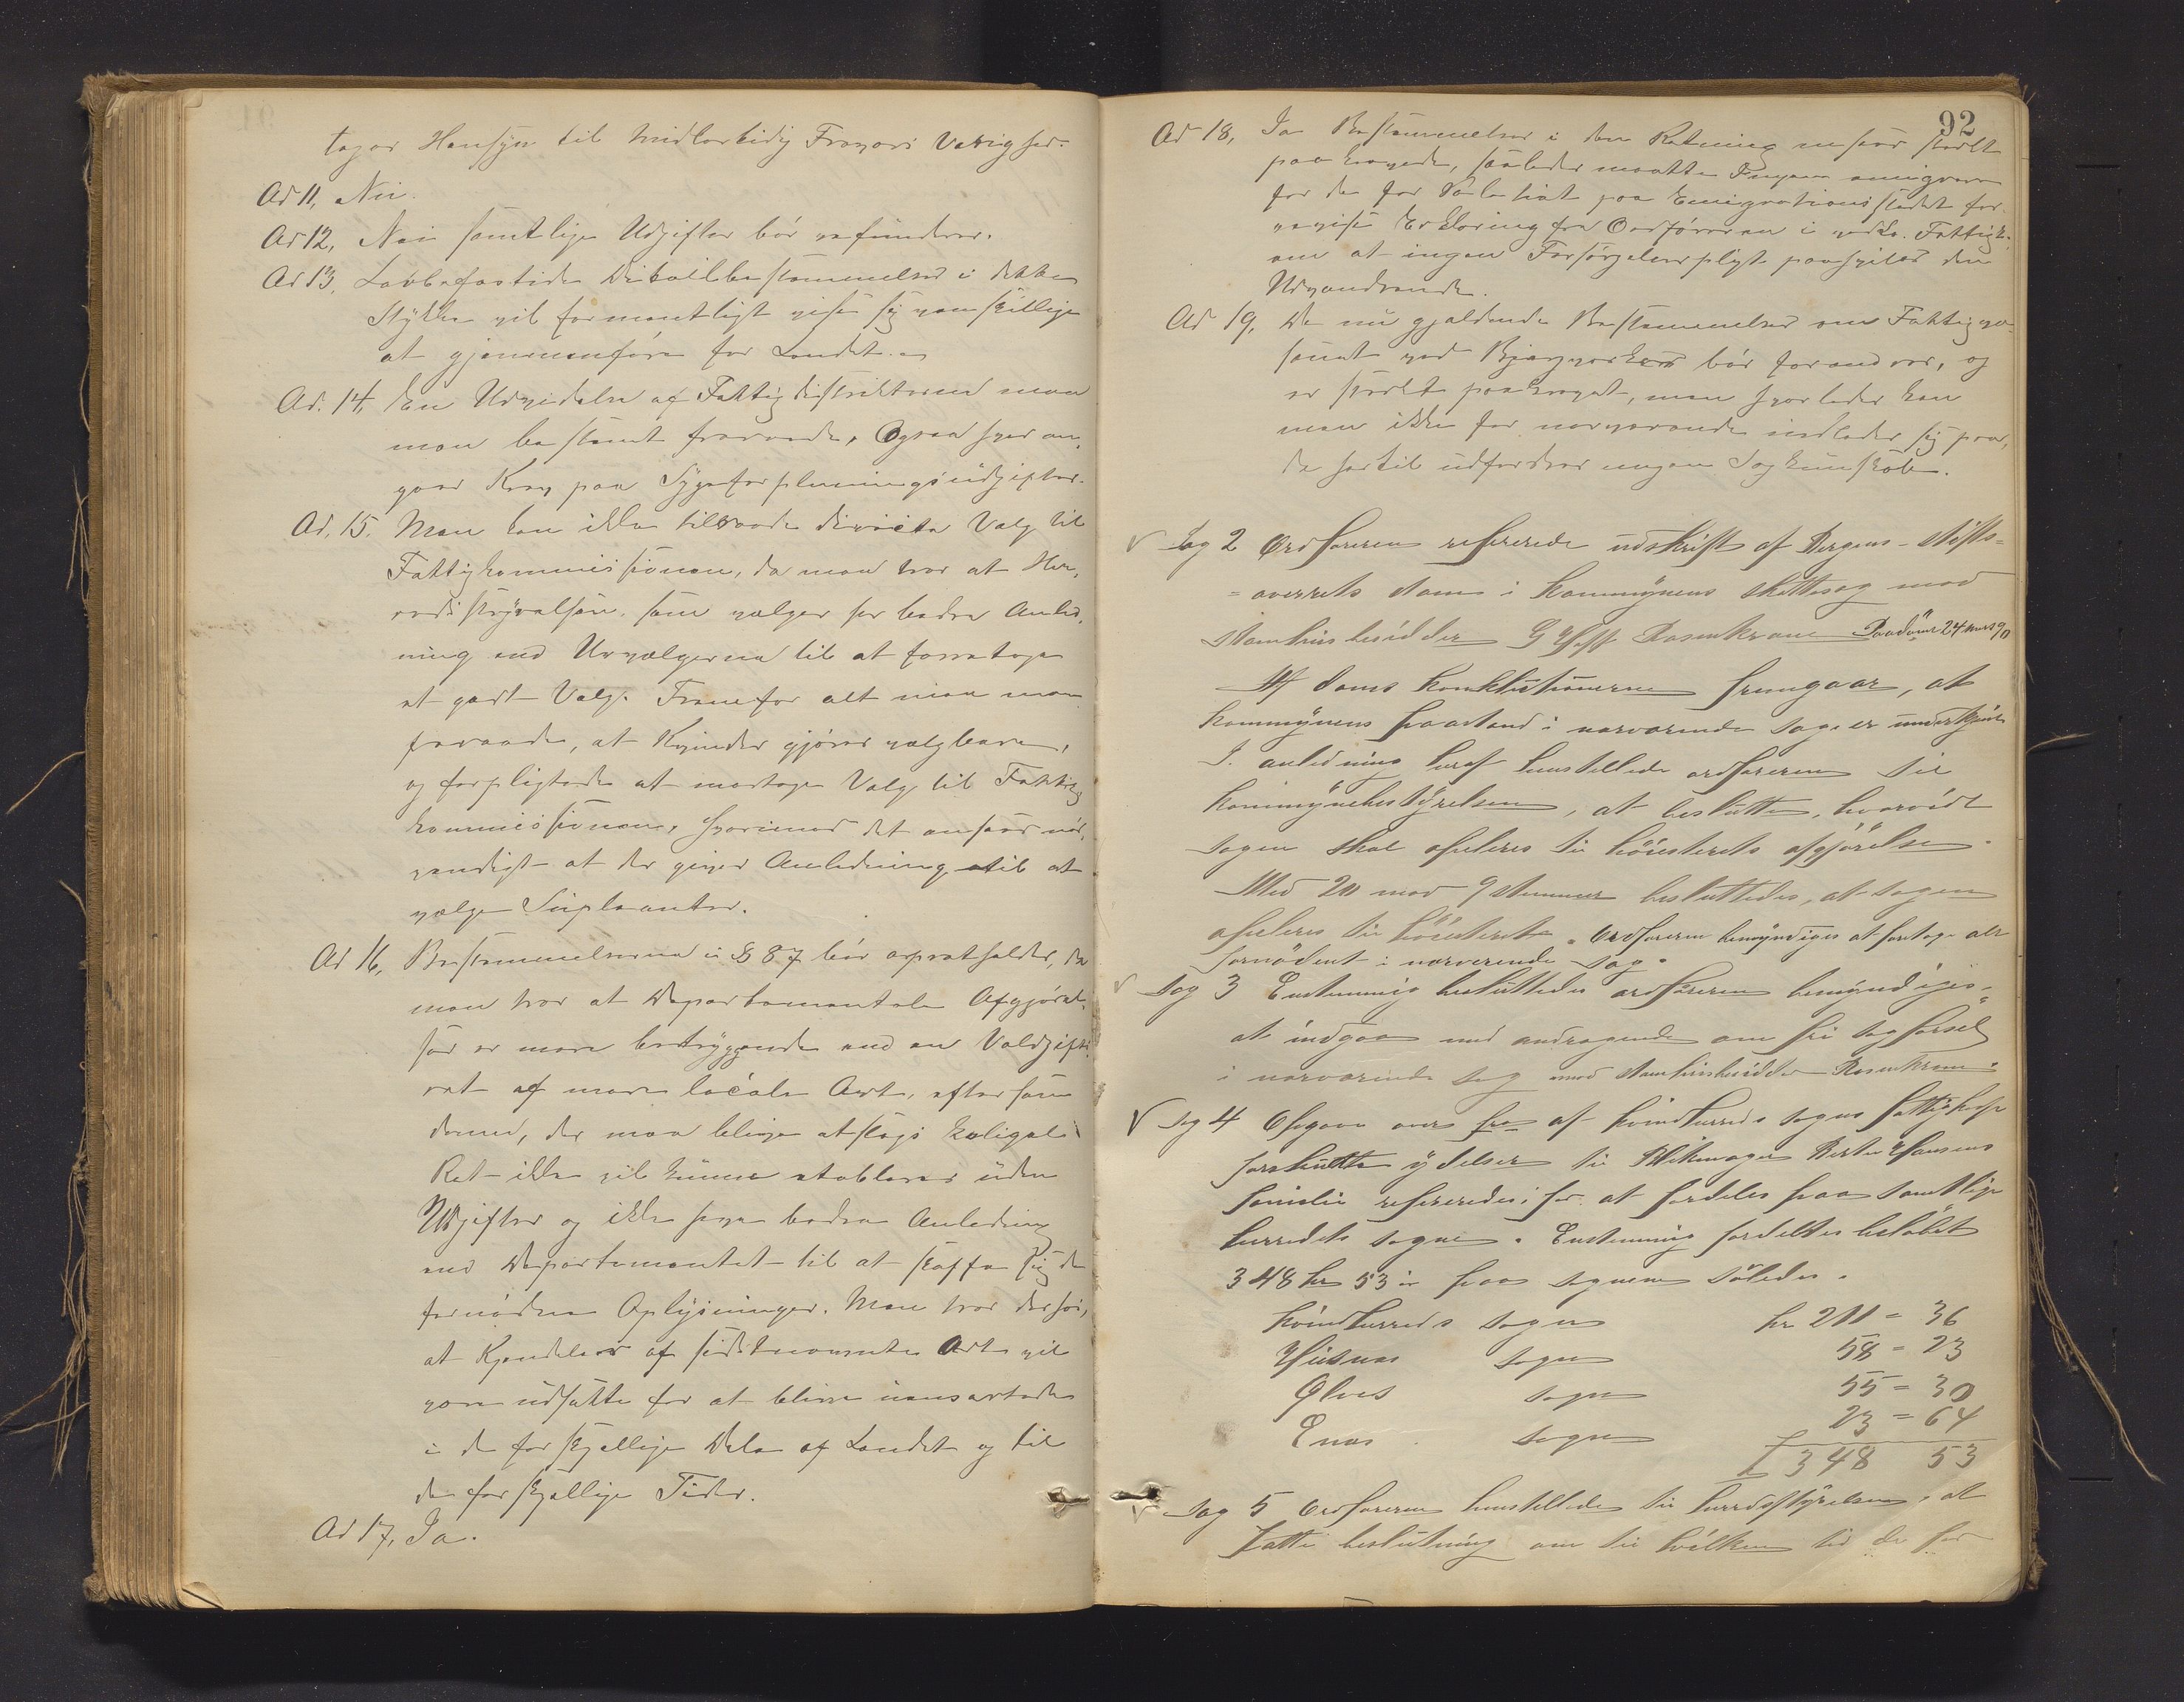 tager Hensyn til midlertidig Fraværs Varighed.
Ad 11, Nei.
Ad 12, Nei samtlige Udgifter bør refunderes.
Ad 13, Lovbefæstede Detailbestemmelser i dette
Stykke vil formentligt vise sig vanskellige
at gjennemføre for Landet.
Ad. 14, En Udvidelse af Fattigdistrikterne maa
man bestemt fraraade, Ogsaa hvad an-
gaar Krav paa Sygeforpleiningsudgifter.
Ad. 15. Man kan ikke tilraade directe Valg til
Fattigkommissionen, da man tror at Her-
redsstyrelsen som vælger har bedre Anled-
ning end Urvælgerne til at foretage
et godt Valg. Fremfor alt maa man
fraraade, at Kvinder gjøres valgbare,
og forpligtede at modtage Valg til Fattig
kommissionen, hvorimod det ansees nød-
vendigt at der gives Anledning til at
vælge Supleanter.
Ad 16, Bestemmelserne i § 87 bør opretholdes, da
man tror at Departementale Afgjørel-
ser er mere betryggende end en Voldgifts
ret af mere locale Art, eftersom
denne, der maa blive et slags
Ret ikke vil kunne etableres uden
Udgifter og ikke have bedre Anledning
end Departementet til at skaffe sig de
fornødne Oplysninger. Man tror derhos,
at Kjendelser af sidstnævnte Art vil
være udsatte for at blive uensartede
i de forskjellige Dele af Landet og til
de forskjellige Tider.
Ad 17, Ja.
92
Ad 18, Ja Bestemmelser i den Retning ansees stærkt
paakrævede, saaledes maatte Ingen emigrere
før de for Politiet paa Emigrationsstedet for-
eviste Erklæring fra Ordføreren i vedk. Fattigk.
om at ingen Forsørgelsespligt paahviler den
Udvandrende.
Ad 19, De nu gjældende Bestemmelser om Fattigvæ-
senet ved Bjergverker bør forandres, og
er stærkt paakrævet, men hvorledes kan
man ikke for nærværende indlade sig paa,
da hertil udfordres nogen Sagkundskab.
V Sag 2 Ordføreren refererede udskrift af Bergens Stifts-
= overrets dom i Kommunens skattesag mod
Stamhusbesidder G Hoff Rosenkrone Paadømt 24 mars 90
Af doms konklutionerne fremgaar, at
kommunens paastand i nærværende sag er underkjent
I anledning heraf henstillede ordføreren til
kommunebestyrelsen, at beslutte, hvorvidt
sagen skal apeleres til høiesterets afgjørelse.
Med 20 mod 9 stemmer besluttedes, at sagen
apeleres til høiesteret. Ordføreren bemyndiges at foretage alt
fornødent i nærværende sag.
V Sag 3 Enstemmig besluttedes ordføreren bemyndiges
at indgaa med andragende om fri sagførsel
i nærværende sag mod Stamhusbesidder Rosenkrone
V Sag 4 Opgave over fra af Kvindherreds sogns fattigkasse
forskutte ydelser til Berte Hansens
familie refereredes for at fordeles paa samtlige
herredets sogne. Enstemmig fordeltes beløbet
348 kr 53 ør paa sognene således.
Kvindherreds sogn kr 211 = 36
Husnes sogn 58 = 23
Ølves sogn 55 = 30
Enes sogn 23 = 64
348 53
V Sag 5 Ordføreren henstillede til herredsstyrelsen, at
fatte beslutning om til hvilken tid de for